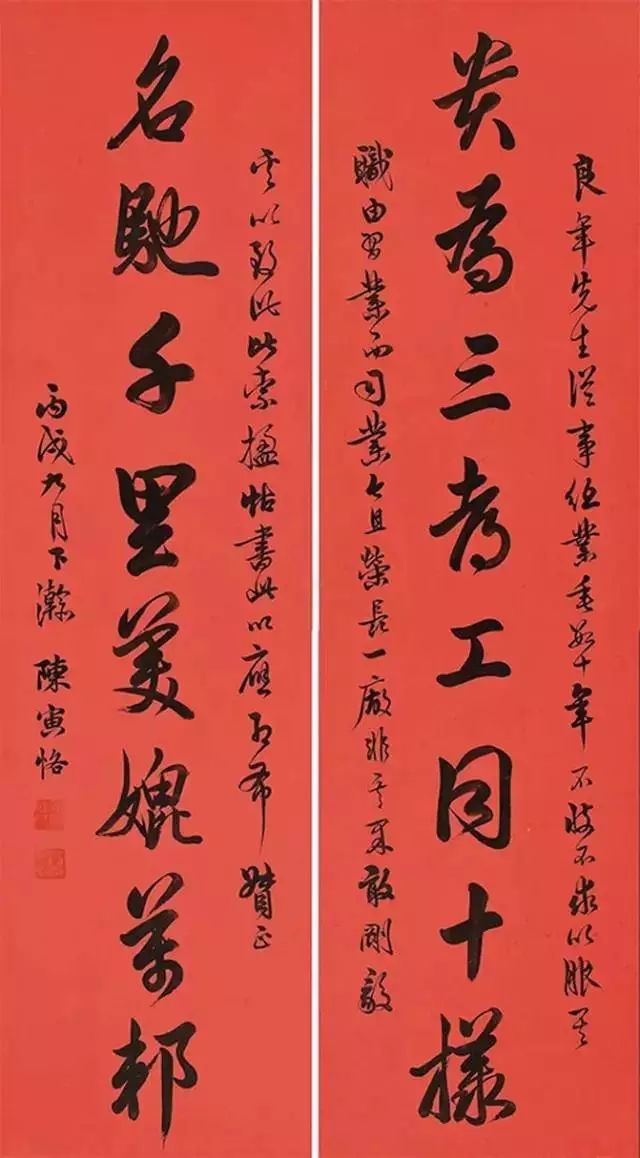 良年先生從事業垂數十年不忮不求以服其
為三考工同十樣
職由習業而司業且榮長一廠非其果敢剛毅
以致此索楹帖書此以應即希贊正
名馳千里美媲萬邦
丙戌九月下澣 陳寅恪